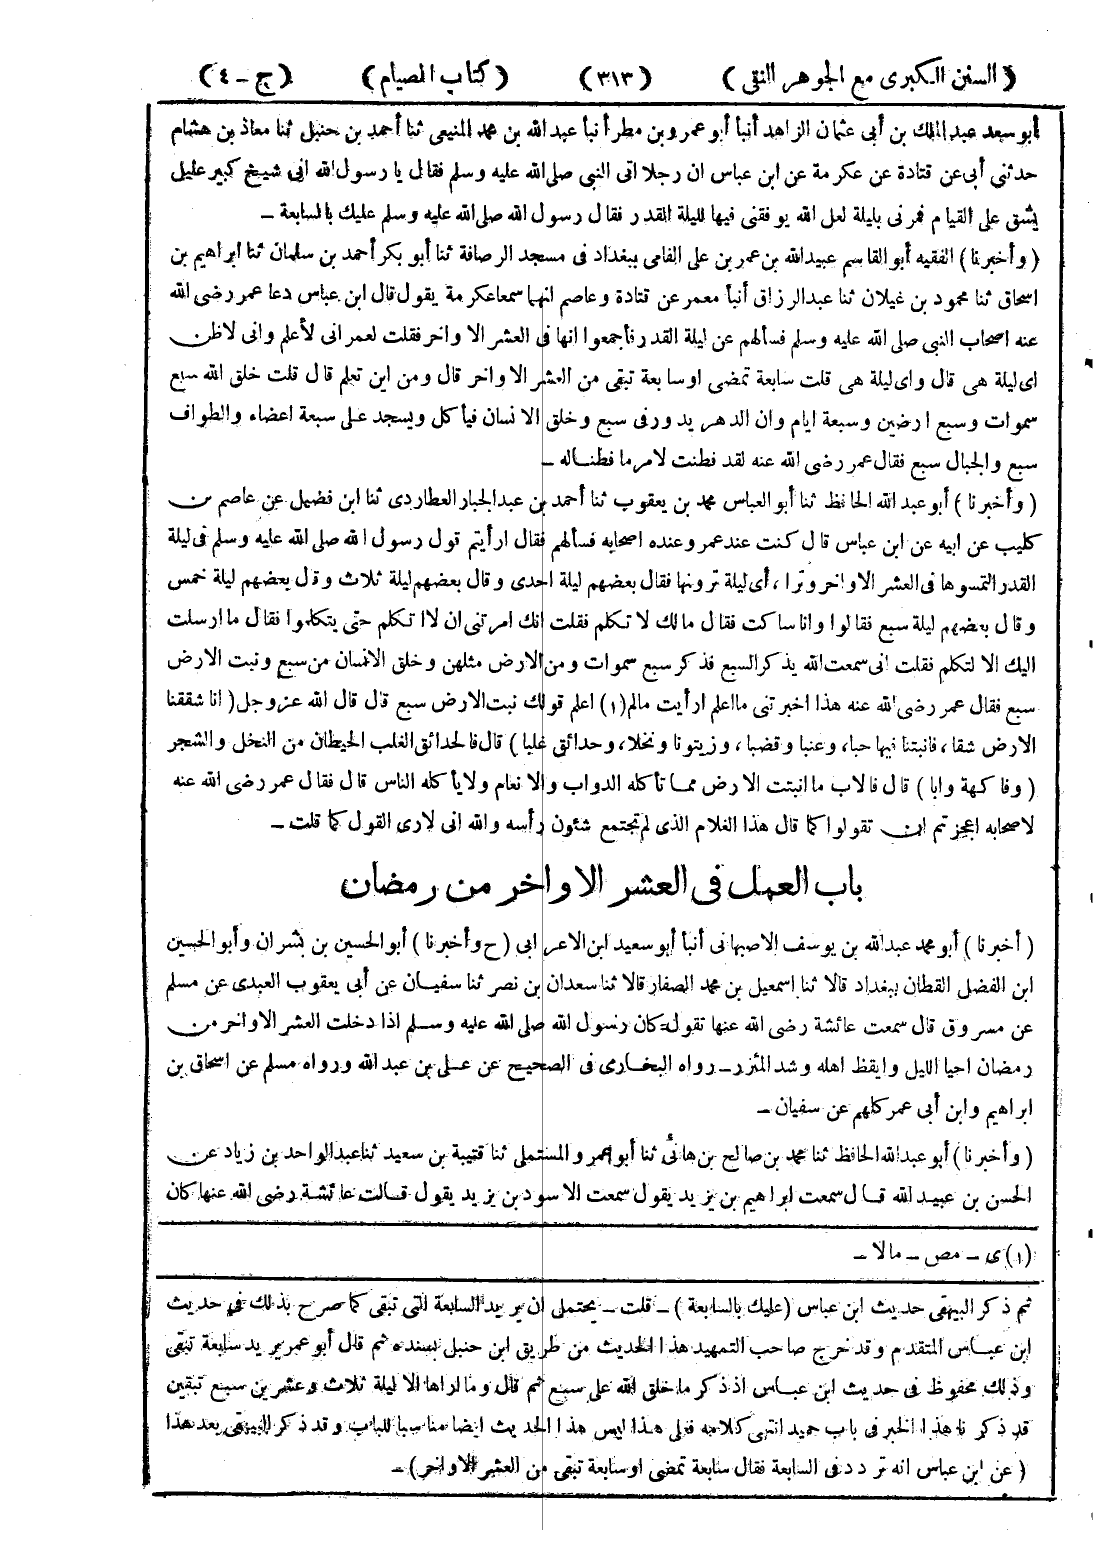 (السنن الكبرى مع الجوهر النقى) (٣١٣) (كتاب الصيام) (ج ـ ٤)
أبو سعد عبد الملك بن أبى عثمان الزاهد أنبأ أبو عمرو بن مطر أنبأ عبد الله بن محمد المنيعى ثنا أحمد بن حنبل ثنا معاذ بن هشام
حدثنى أبى عن قتادة عن عكرمة عن ابن عباس ان رجلا اتى النبى صلى الله عليه وسلم فقال يا رسول الله انى شيخ كبير عليل
يشق على القيام فمرنى بليلة لعل الله يوفقنى فيها لليلة القدر فقال رسول الله صلى الله عليه وسلم عليك بالسابعة ـ
(وأخبرنا) الفقيه أبو القاسم عبيد الله بن عمر بن على الفامى ببغداد فى مسجد الرصافة ثنا أبو بكر أحمد بن سلمان ثنا ابراهيم بن
اسحاق ثنا محمود بن غيلان ثنا عبد الرزاق أنبأ معمر عن قتادة وعاصم انهما سمعا عكرمة يقول قال ابن عباس دعا عمر رضى الله
عنه اصحاب النبى صلى الله عليه وسلم فسألهم عن ليلة القدر فأجمعوا انها فى العشر الاواخر فقلت لعمر انى لأعلم وانى لاظن
اى ليلة هى قال واى ليلة هى قلت سابعة تمضى او سابعة تبقى من العشر الاواخر قال ومن اين تعلم قال قلت خلق الله سبع
سموات وسبع ارضين وسبعة ايام وان الدهر يدور فى سبع وخلق الانسان فيأكل ويسجد على سبعة اعضاء والطواف
سبع والجبال سبع فقال عمر رضى الله عنه لقد فطنت لامر ما فطنا له ـ
(وأخبرنا) أبو عبد الله الحافظ ثنا أبو العباس محمد بن يعقوب ثنا أحمد بن عبد الجبار العطاردى ثنا ابن فضيل عن عاصم بن
كليب عن ابيه عن ابن عباس قال كنت عند عمر وعنده اصحابه فسألهم فقال ارأيتم قول رسول الله صلى الله عليه وسلم فى ليلة
القدر التمسوها فى العشر الاواخر وترا، أى ليلة ترونها فقال بعضهم ليلة احدى وقال بعضهم ليلة ثلاث وقال بعضهم ليلة خمس
وقال بعضهم ليلة سبع فقالوا وانا ساكت فقال مالك لا تكلم فقلت انك امرتنى ان لا اتكلم حتى يتكلموا فقال ما ارسلت
اليك الا لتكلم فقلت انى سمعت الله يذكر السبع فذكر سبع سموات ومن الارض مثلهن وخلق الانسان من سبع ونبت الارض
سبع فقال عمر رضى الله عنه هذا اخبرتنى ما اعلم ارأيت مالم (١) اعلم قولك نبت الارض سبع قال قال الله عز وجل (انا شققنا
الارض شقا، فانبتنا فيها حبا، وعنبا وقضبا، وزيتونا ونخلا، وحدائق غلبا) قال فالحدائق الغلب الحيطان من النخل والشجر
(وفاكهة وابا) قال فالاب ما انبتت الارض مما تأكله الدواب والانعام ولا يأكله الناس قال فقال عمر رضى الله عنه
لاصحابه اعجزتم ان تقولوا كما قال هذا الغلام الذى لم تجتمع شئون رأسه والله انى لارى القول كما قلت ـ
باب العمل فى العشر الاواخر من رمضان
(أخبرنا) أبو محمد عبد الله بن يوسف الاصبهانى أنبأ أبو سعيد ابن الاعرابى (ح وأخبرنا) أبو الحسين بن بشران وأبو الحسين
ابن الفضل القطان ببغداد قالا ثنا اسمعيل بن محمد الصفار قالا ثنا سعدان بن نصر ثنا سفيان عن أبى يعقوب العبدى عن مسلم
عن مسروق قال سمعت عائشة رضى الله عنها تقول كان رسول الله صلى الله عليه وسلم اذا دخلت العشر الاواخر من
رمضان احيا الليل وايقظ اهله وشد المئزر ـ رواه البخارى فى الصحيح عن على بن عبد الله ورواه مسلم عن اسحاق بن
ابراهيم وابن أبى عمر كلهم عن سفيان ـ
(وأخبرنا) أبو عبد الله الحافظ ثنا محمد بن صالح بن هانئ ثنا أبو عمرو المستملى ثنا قتيبة بن سعيد ثنا عبد الواحد بن زياد عن
الحسن بن عبيد الله قال سمعت ابراهيم بن يزيد يقول سمعت الاسود بن يزيد يقول قالت عائشة رضى الله عنها كان
(١) ى ـ مص ـ مالا ـ
ثم ذكر البيهقى حديث ابن عباس (عليك بالسابعة) ـ قلت ـ يحتمل ان يريد السابعة التى تبقى كما صرح بذلك فى حديث
ابن عباس المتقدم وقد خرج صاحب التمهيد هذا الحديث من طريق ابن حنبل بسنده ثم قال أبو عمر يريد سابعة تبقى
وذلك محفوظ فى حديث ابن عباس اذ ذكر ما خلق الله على سبع ثم قال وما اراها الا ليلة ثلاث وعشرين سبع تبقين
قد ذكرنا هذا الخبر فى باب حميد انتهى كلامه فعلى هذا ليس هذا الحديث ايضا مناسبا للباب وقد ذكر البيهقى بعد هذا
(عن ابن عباس انه تردد فى السابعة فقال سابعة تمضى او سابعة تبقى من العشر الاواخر) ـ